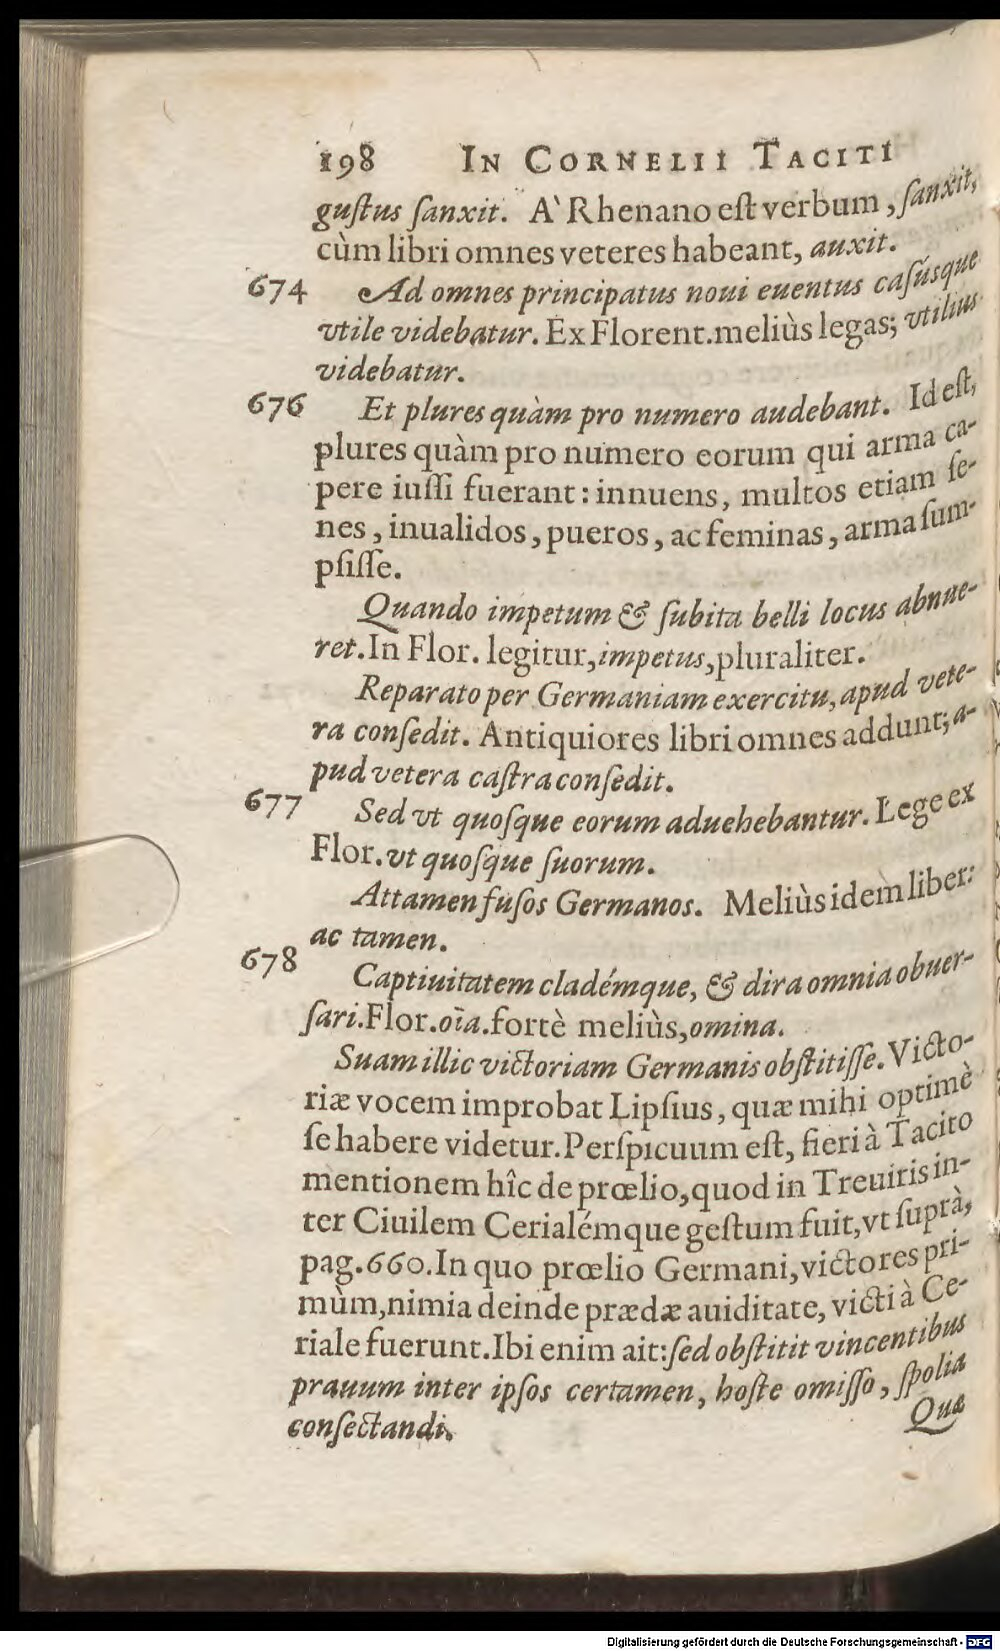 198 IN CORNELII TACITI
guſtus ſanxit. A' Rhenano eſt verbum, ſanxit,
cùm libri omnes veteres habeant, auxit.
674 Ad omnes principatus noui euentus caſúsque
vtile videbatur. Ex Florent. meliùs legas; vtilius
videbatur.
676 Et plures quàm pro numero audebant. Id eſt,
plures quàm pro numero eorum qui arma ca-
pere iuſſi fuerant: innuens, multos etiam ſe-
nes, inualidos, pueros, ac feminas, arma ſum-
pſiſſe.
Quando impetum & ſubita belli locus abnue-
ret. In Flor. legitur, impetus, pluraliter.
Reparato per Germaniam exercitu, apud vete-
ra conſedit. Antiquiores libri omnes addunt; a-
pud vetera caſtra conſedit.
677 Sed vt quoſque eorum aduehebantur. Lege ex
Flor. vt quoſque ſuorum.
Attamen fuſos Germanos. Meliùs idem liber:
ac tamen.
678 Captiuitatem cladémque, & dira omnia obuer-
ſari. Flor. oīa. fortè meliùs, omina.
Suam illic victoriam Germanis obſtitiſſe. Victo-
riæ vocem improbat Lipſius, quæ mihi optimè
ſe habere videtur. Perſpicuum eſt, fieri à Tacito
mentionem hîc de prœlio, quod in Treuiris in-
ter Ciuilem Cerialémque geſtum fuit, vt ſuprà,
pag. 660. In quo prœlio Germani, victores pri-
mùm, nimia deinde prædæ auiditate, victi à Ce-
riale fuerunt. Ibi enim ait: ſed obſtitit vincentibus
prauum inter ipſos certamen, hoſte omiſſo, ſpolia
conſectandi.
Quæ
Digitalisierung gefördert durch die Deutsche Forschungsgemeinschaft - DFG